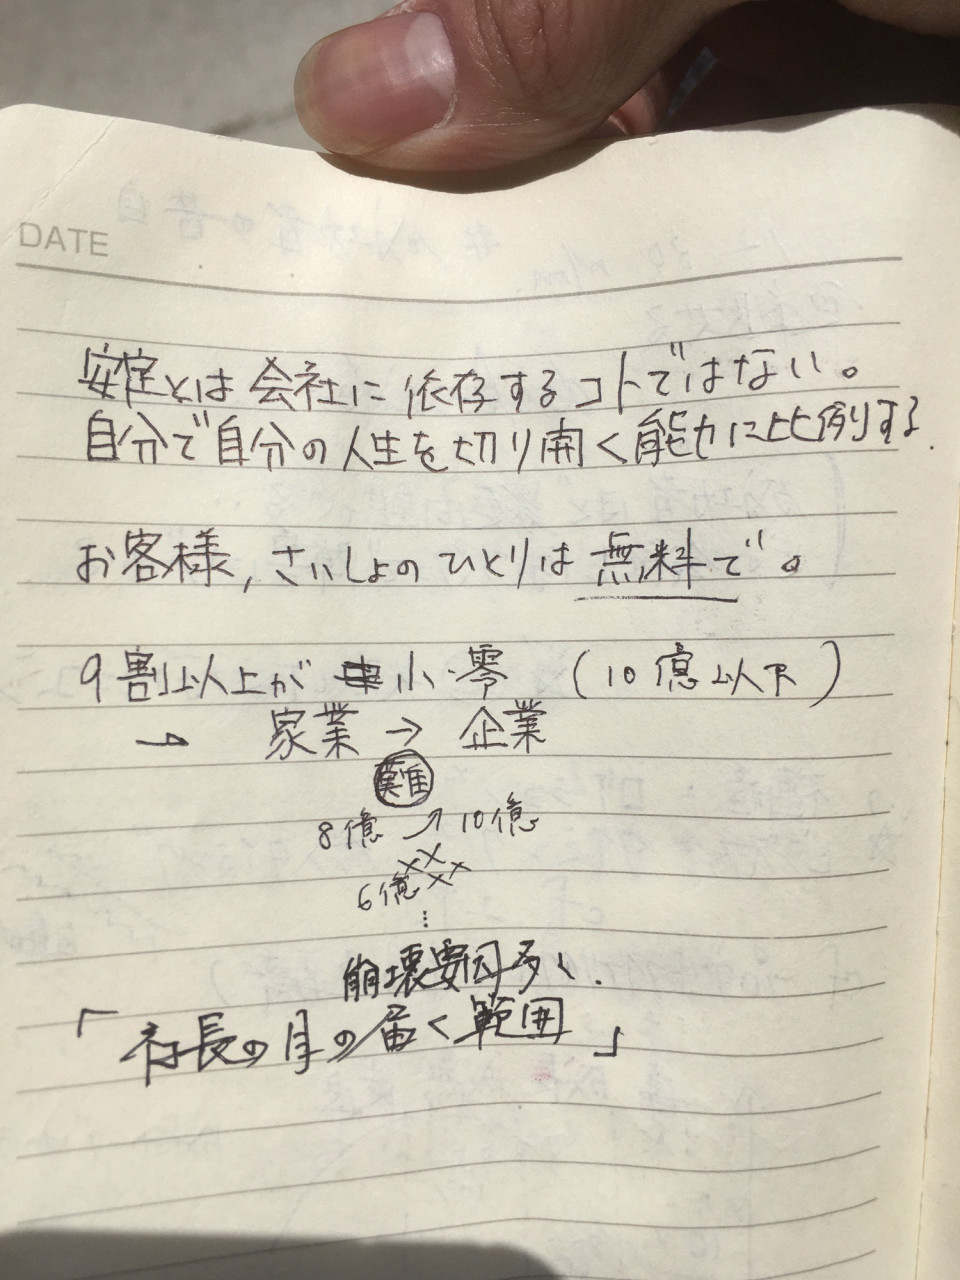 DATE
安定とは会社に依存するコトではない。
自分で自分の人生を切り開く能力に比例する.
お客様, さいしょのひとりは無料で。
9割以上が 小・零 (10億以下)
→ 家業 → 企業
難
8億 ↗ 10億
××××
6億
⋮
崩壊要因多く.
「社長の目の届く範囲」